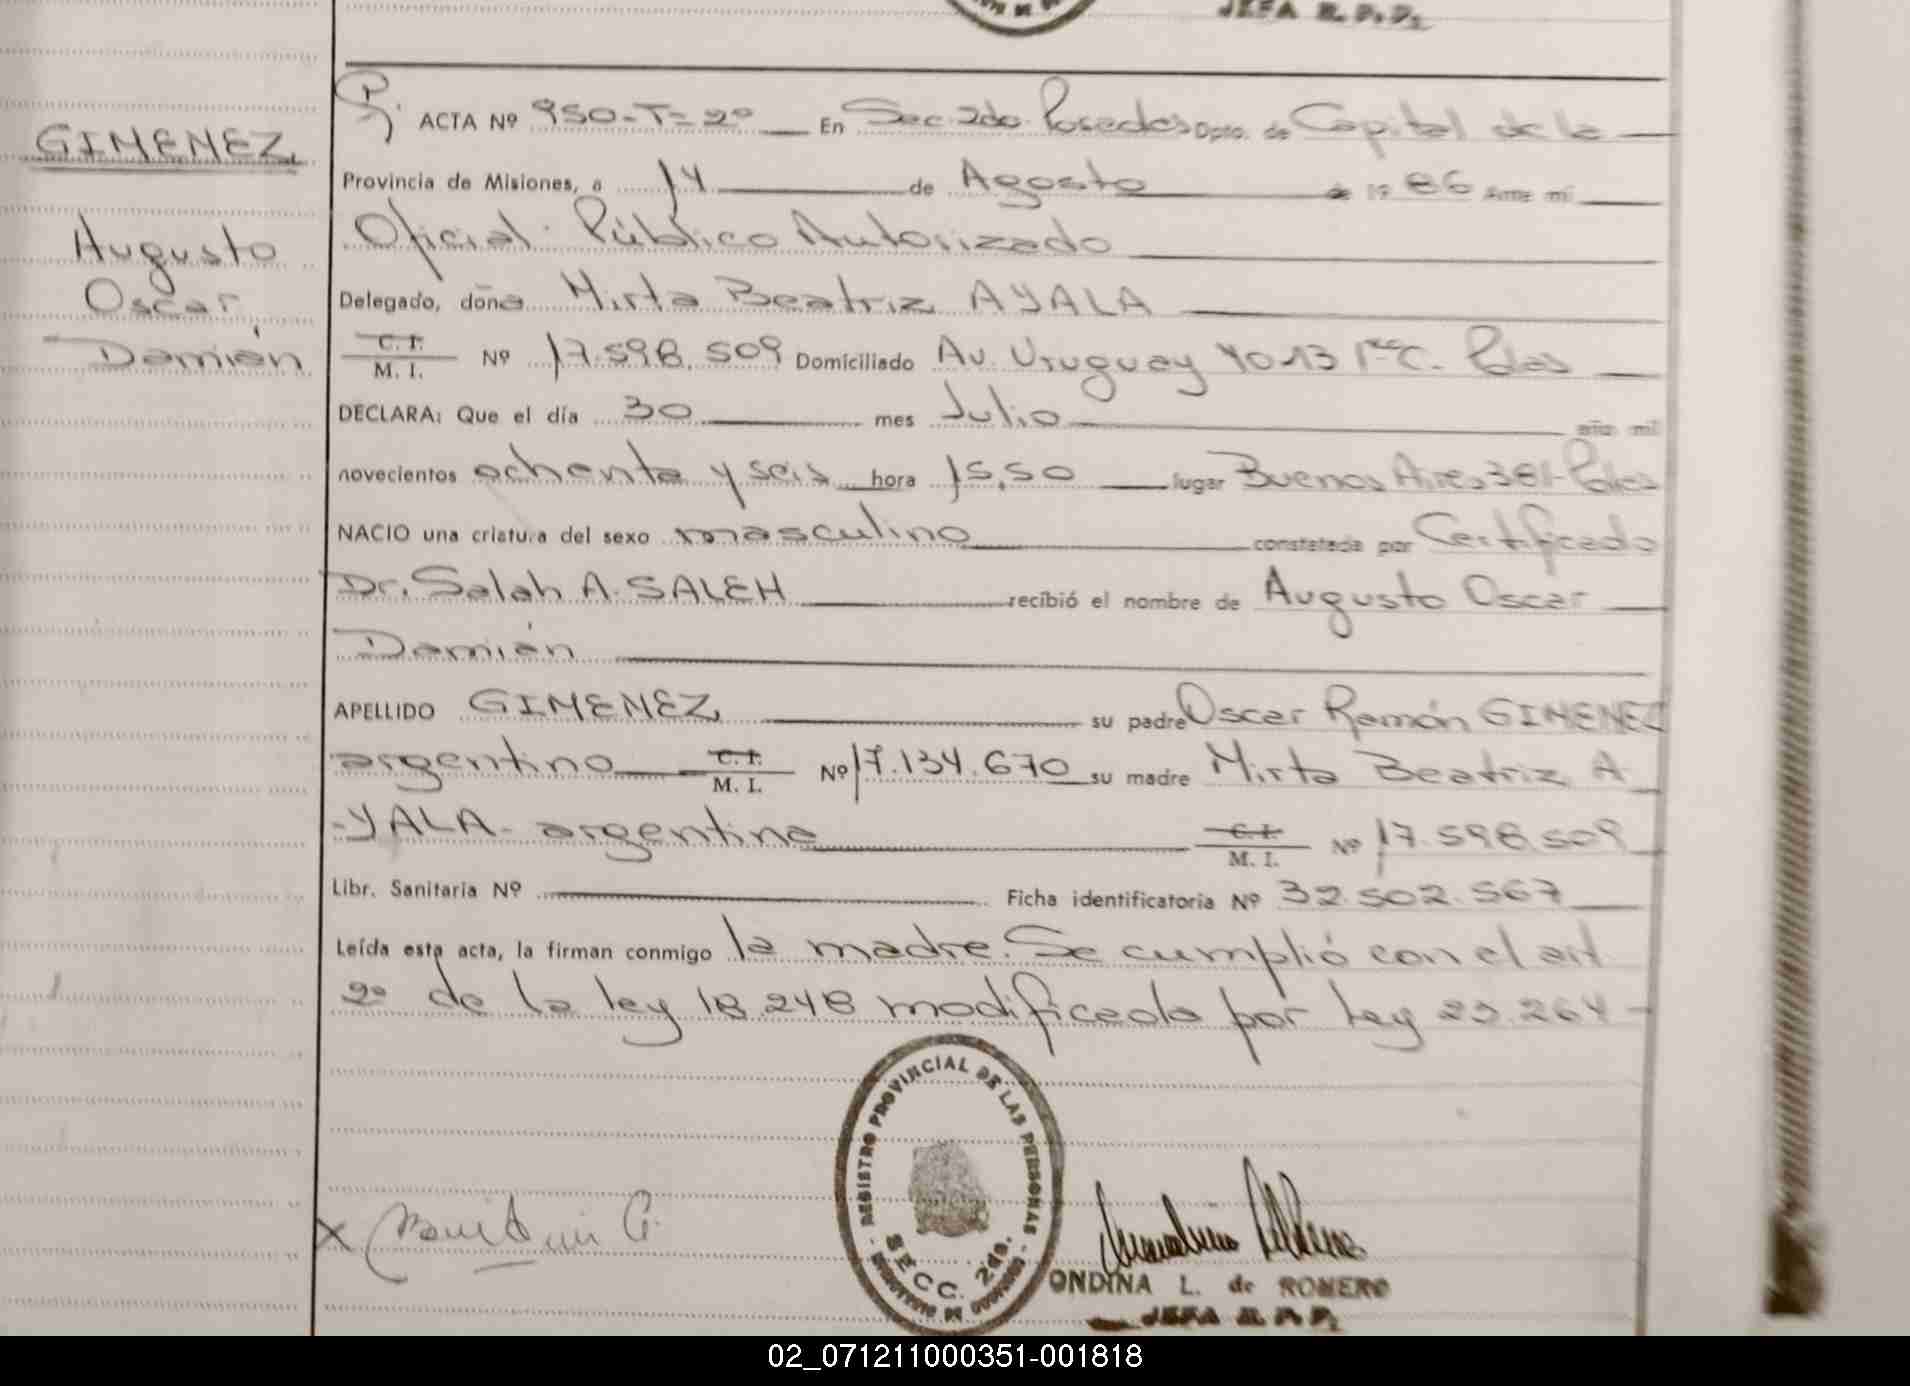 JEFA R. P. P.
GIMENEZ,
Augusto
Oscar,
Damián
ACTA Nº 950-T=2º En Sec. 2da Posadas Dpto. de Capital de la
Provincia de Misiones, a 14 de Agosto de 1986 Ante mí
Oficial Público Autorizado
Delegado, doña Mirta Beatriz AYALA
C. I. M. I. Nº 17.598.509 Domiciliado Av. Uruguay Pdas
DECLARA: Que el día 30 mes Julio año mil
novecientos ochenta y seis hora 15,50 lugar Buenos Aires 381-Pdas
NACIO una criatura del sexo masculino constatada por Certificado
Dr. Salah A. SALEH recibió el nombre de Augusto Oscar
Damián
APELLIDO GIMENEZ, su padre Oscar Ramón GIMENEZ
argentino C. I. M. I. Nº 17.134.670 su madre Mirta Beatriz A
-YALA- argentina C. I. M. I. Nº 17.598.509
Libr. Sanitaria Nº Ficha identificatoria Nº 32.502.567
Leída esta acta, la firman conmigo la madre. Se cumplió con el art
2º de la ley 18.248 modificada por Ley 23.264-
REGISTRO PROVINCIAL DE LAS PERSONAS
SECC. 2da.
X
ONDINA L. de ROMERO
JEFA R. P. P.
02_071211000351-001818